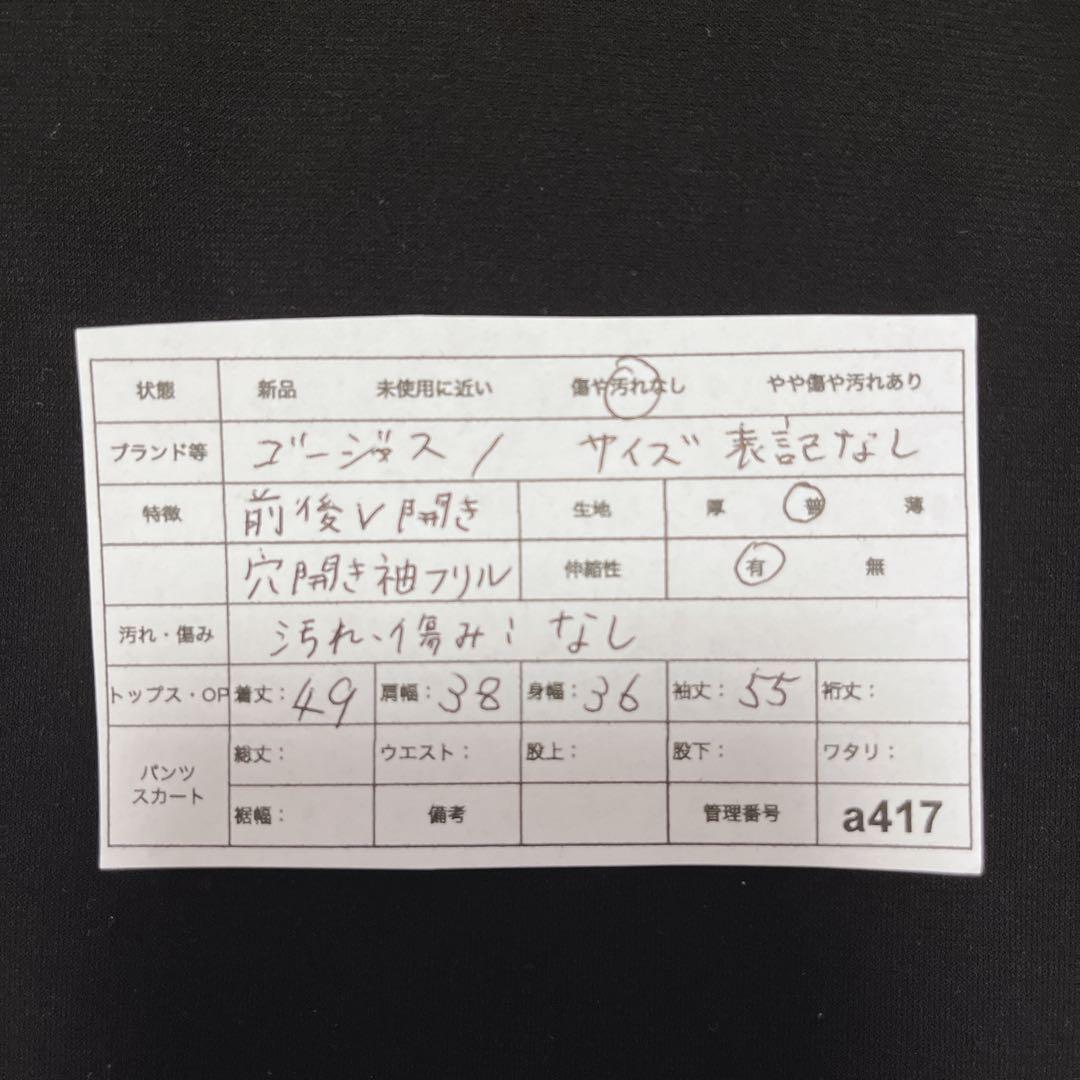 状態 新品 未使用に近い 傷や汚れなし やや傷や汚れあり
ブランド等 ゴージャス / サイズ表記なし
特徴 前後V開き 生地 厚 普 薄
穴開き袖フリル 伸縮性 有 無
汚れ・傷み 汚れ、傷み: なし
トップス・OP 着丈:49 肩幅:38 身幅:36 袖丈:55 裄丈:
パンツ スカート 総丈: ウエスト: 股上: 股下: ワタリ:
裾幅: 備考 管理番号 a417